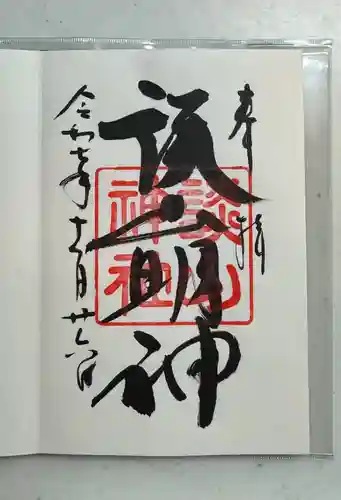 奉拝
談山明神
談山神社
令和七年十一月廿六日